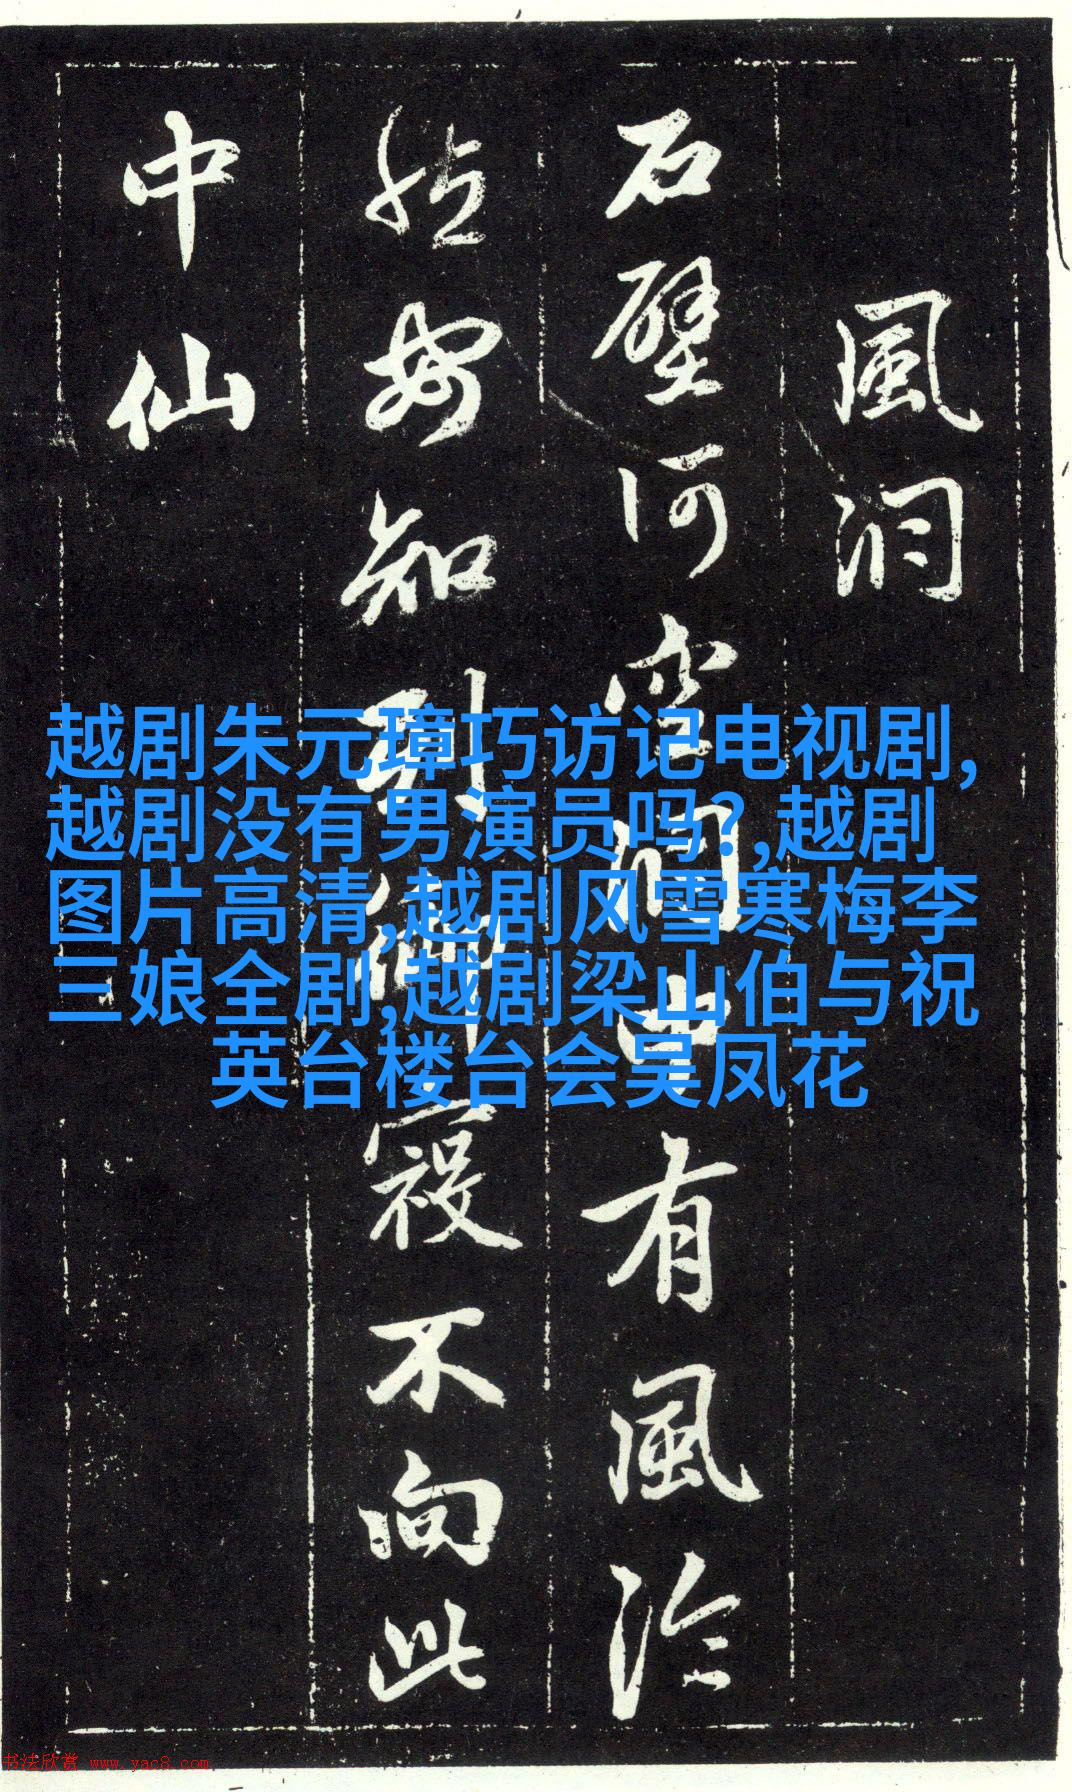 風洞
石壁何空洞中有風泠
然安知列禦寇不向此
中仙
越剧朱元璋巧访记电视剧,
越剧没有男演员吗?,越剧
图片高清,越剧风雪寒梅李
三娘全剧,越剧梁山伯与祝
英台楼台会吴凤花
书法欣赏 www.yac8.com